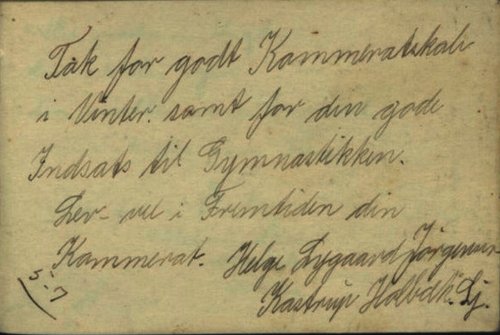 Tak for godt Kammeratskab
i Vinter. samt for den gode
Indsats til Gymnastikken.
Lev vel i Fremtiden din
Kammerat. Helge Lygaard Jørgensen
Kastrup Holbæk. Sj.
5-7